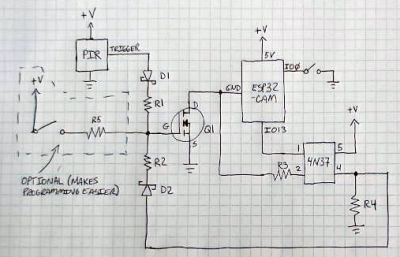 +V
PIR
TRIGGER
D1
R1
+V
R5
OPTIONAL (MAKES
PROGRAMMING EASIER)
G
D
S
Q1
R2
D2
+V
5V
ESP32
-CAM
GND
IO0
IO13
+V
1
5
4N37
2
4
R3
R4